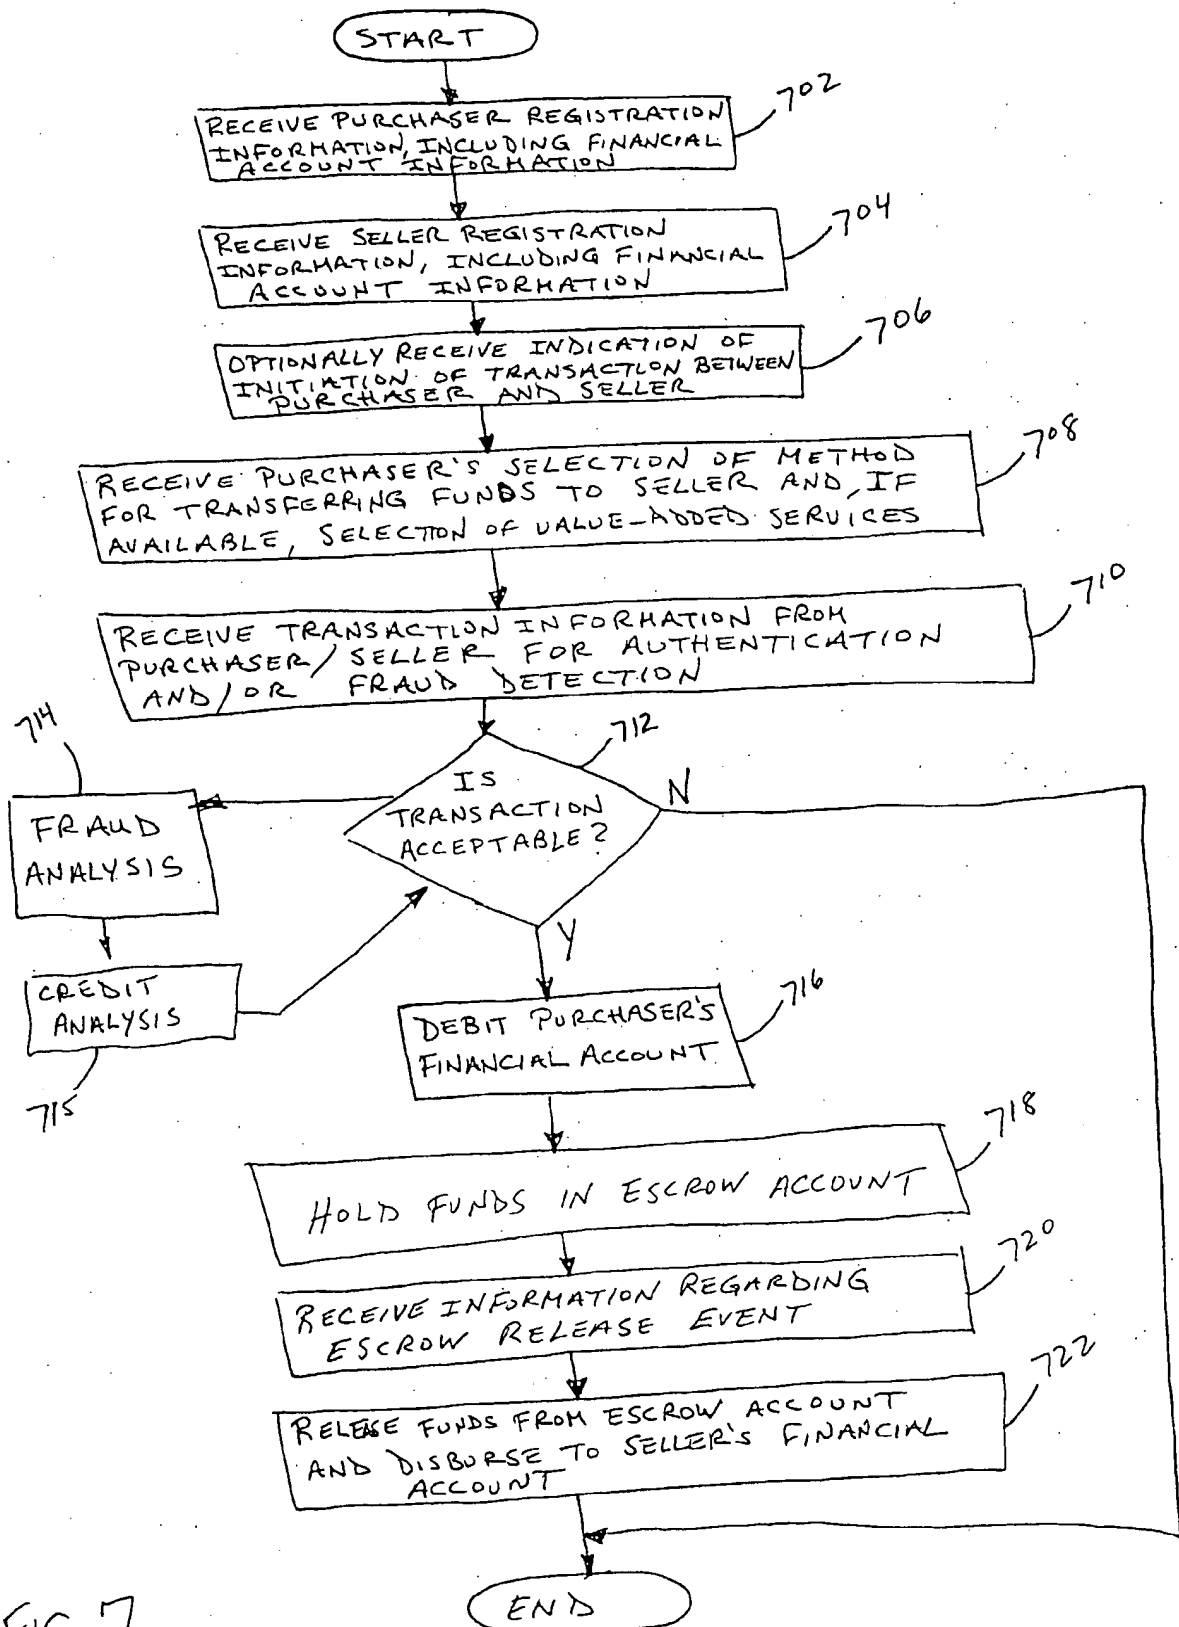 START
702
RECEIVE PURCHASER REGISTRATION
INFORMATION, INCLUDING FINANCIAL
ACCOUNT INFORMATION
704
RECEIVE SELLER REGISTRATION
INFORMATION, INCLUDING FINANCIAL
ACCOUNT INFORMATION
706
OPTIONALLY RECEIVE INDICATION OF
INITIATION OF TRANSACTION BETWEEN
PURCHASER AND SELLER
708
RECEIVE PURCHASER'S SELECTION OF METHOD
FOR TRANSFERRING FUNDS TO SELLER AND, IF
AVAILABLE, SELECTION OF VALUE-ADDED SERVICES
710
RECEIVE TRANSACTION INFORMATION FROM
PURCHASER/SELLER FOR AUTHENTICATION
AND/OR FRAUD DETECTION
712
IS
TRANSACTION
ACCEPTABLE?
N
714
FRAUD
ANALYSIS
CREDIT
ANALYSIS
715
Y
716
DEBIT PURCHASER'S
FINANCIAL ACCOUNT
718
HOLD FUNDS IN ESCROW ACCOUNT
720
RECEIVE INFORMATION REGARDING
ESCROW RELEASE EVENT
722
RELEASE FUNDS FROM ESCROW ACCOUNT
AND DISBURSE TO SELLER'S FINANCIAL
ACCOUNT
END
FIG 7